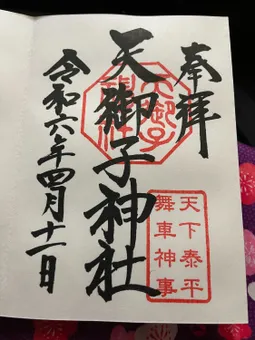 奉拝
天御子神社
令和六年四月十一日
天御子神社
天下泰平
舞車神事